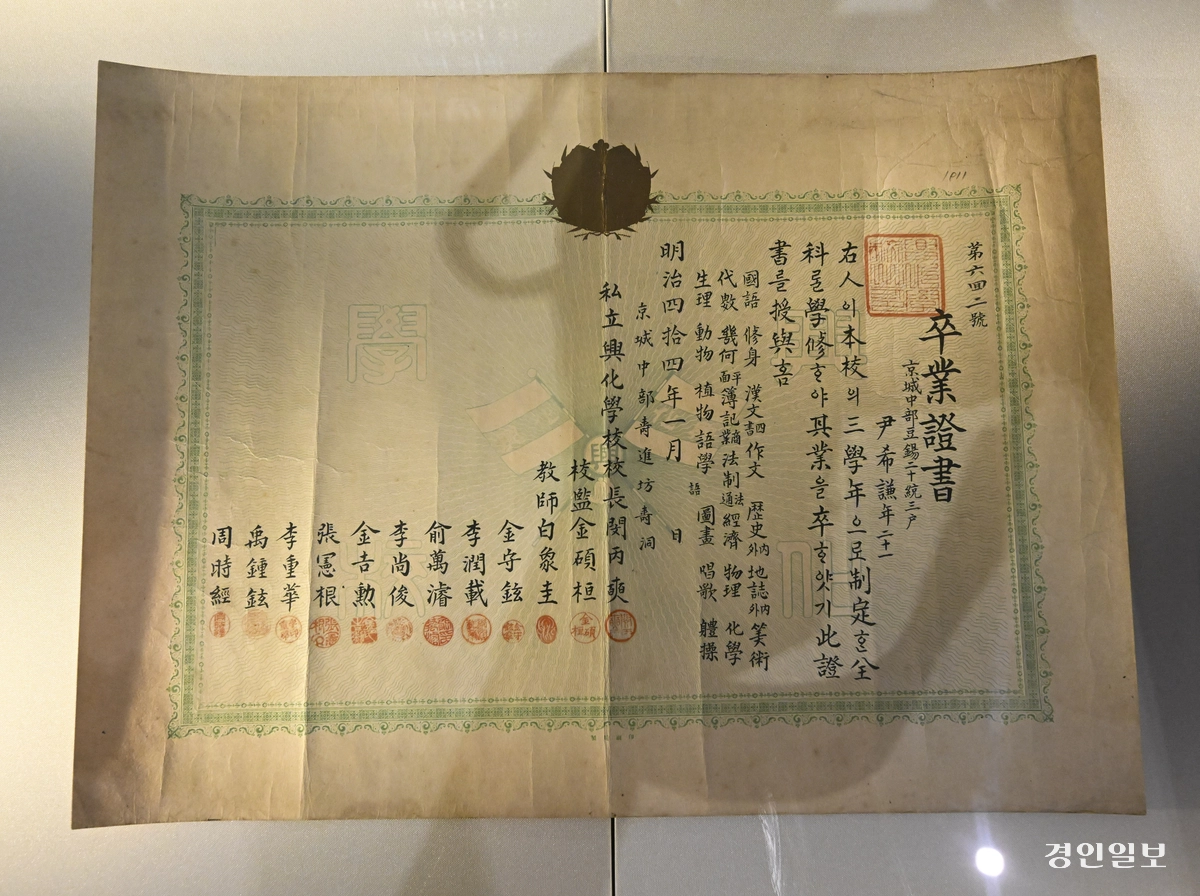 第六四二號
卒業證書
京城中部豆錫二十統三戶
尹希謙年二十一
右人이本校의三學年으로制定ᄒᆞᆫ全
科ᄅᆞᆯ學修ᄒᆞ야其業을卒ᄒᆞ얏기此證
書ᄅᆞᆯ授與홈
國語 修身 漢文 四書 作文 歷史 內外 地誌 內外 筭術
代數 幾何 平面 簿記 商業 法制 法通 經濟 物理 化學
生理 動物 植物 語學 語 圖畫 唱歌 軆操
明治四拾四年一月 日
京城中部壽進坊壽洞
私立興化學校校長閔丙奭
校監金碩桓
教師白象圭
金守鉉
李潤載
俞萬濬
李尚俊
金吉勲
張憲根
李重華
禹鍾鉉
周時經
學
興
경인일보